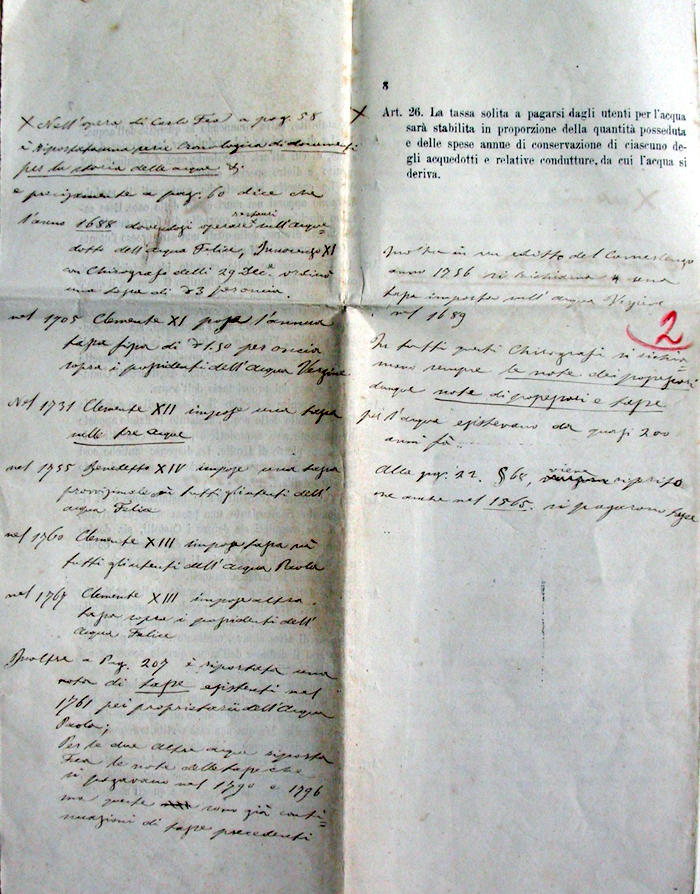 X Nell'opera di Carlo Fea a pag. 58
è riportata una serie Cronologica di documenti
per la storia delle acque
e precisamente a pag. 60 dice che
l'anno 1688 dovendosi operare restauri sull'acque
dotto dell'Acqua Felice, Innocenzo XI
con Chirografo delli 29 Dec. ordinò
una tassa di 3 per oncia.
nel 1705 Clemente XI pose l'annua
tassa fissa di 1.50 per oncia
sopra i proprietari dell'Acqua Vergine
Nel 1731 Clemente XII impose una tassa
nelle tre acque
nel 1755 Benedetto XIV impose una tassa
provvisionale su tutti gli utenti dell'
acqua Felice
nel 1760 Clemente XIII impose tassa su
tutti gli utenti dell'Acqua Paola
nel 1767 Clemente XIII impose altra
tassa sopra i proprietari dell'
Acqua Felice
Inoltre a Pag. 207 è riportata una
nota di tasse esistenti nel
1761 pei proprietarii dell'Acqua
Paola;
Per le due altre acque riporta
Fea le note delle tasse che
si pagavano nel 1790 e 1796
ma queste sono già conti=
nuazioni di tasse precedenti
8
X Art. 26. La tassa solita a pagarsi dagli utenti per l'acqua
sarà stabilita in proporzione della quantità posseduta
e delle spese annue di conservazione di ciascuno de-
gli acquedotti e relative condutture, da cui l'acqua si
deriva.
Inoltre in un editto del Camerlengo
anno 1756 si richiama una
tassa imposta sull'acqua Vergine
nel 1689
2
In tutti questi Chirografi si richia=
mano sempre le note dei possessori
dunque note di possessori e tasse
per l'acqua esistevano da quasi 200
anni fa.
Alla pag. 22. § 65, viene riferito
che anche nel 1865 si pagarono tasse